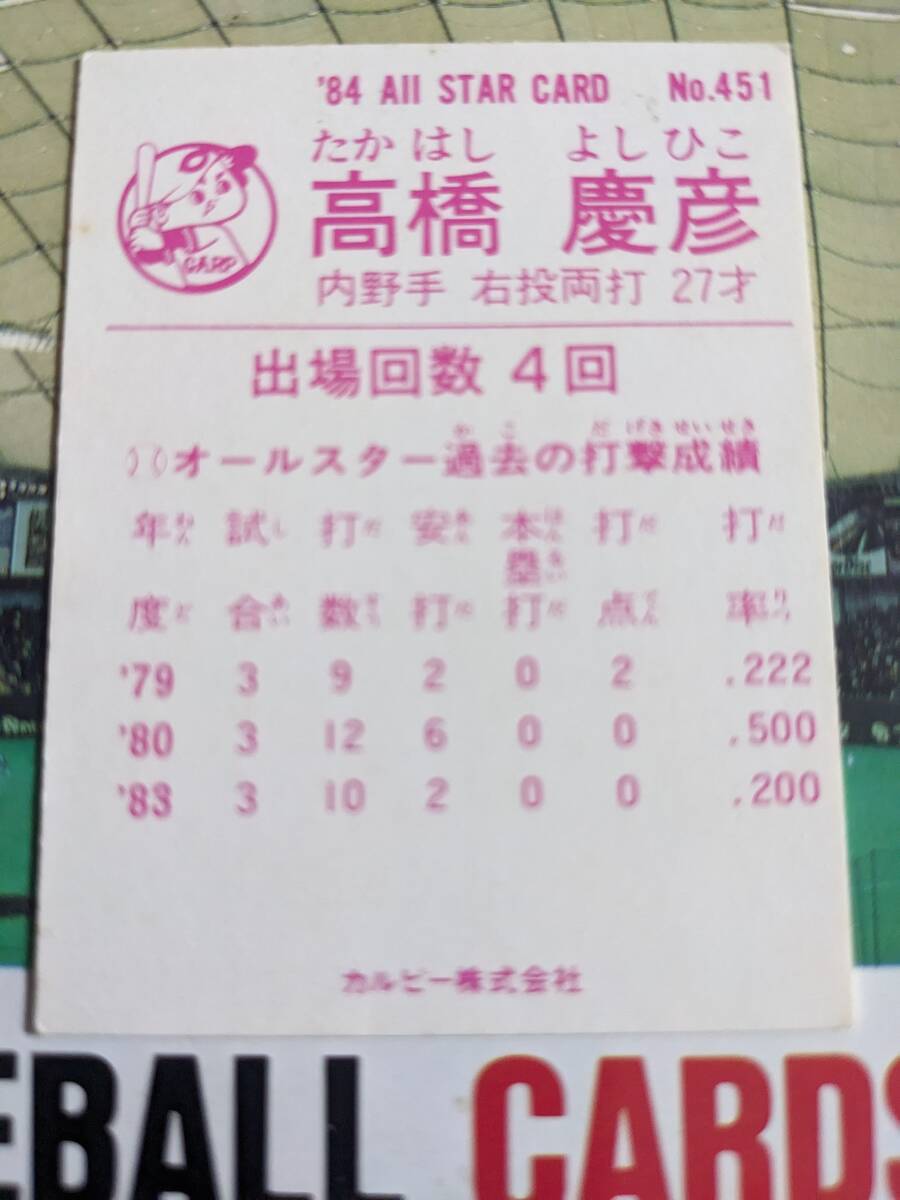 '84 All STAR CARD No.451
たか はし よし ひこ
高橋 慶彦
CARP
内野手 右投両打 27才
出場回数 4回
か こ だ げき せい せき
オールスター過去の打撃成績
年度 試合 打数 安打 本塁打 打点 打率
'79 3 9 2 0 2 .222
'80 3 12 6 0 0 .500
'83 3 10 2 0 0 .200
カルビー株式会社
EBALL CARDS